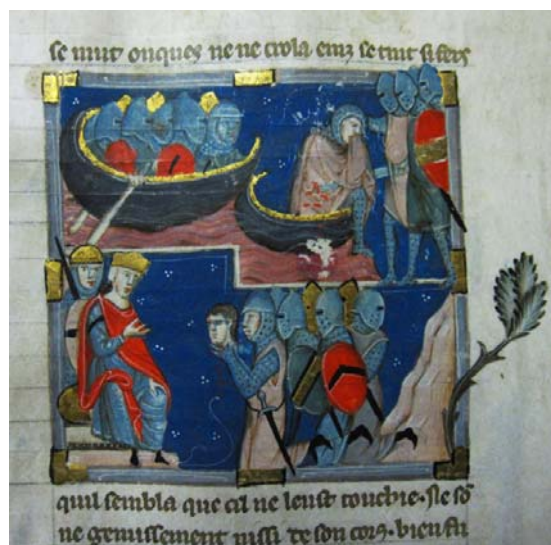 se mut onques ne ne crola einz se tint si fers
quil sembla que cil ne leust touchie. Ne sō
ne gemissement nissi de son cors. bien fu